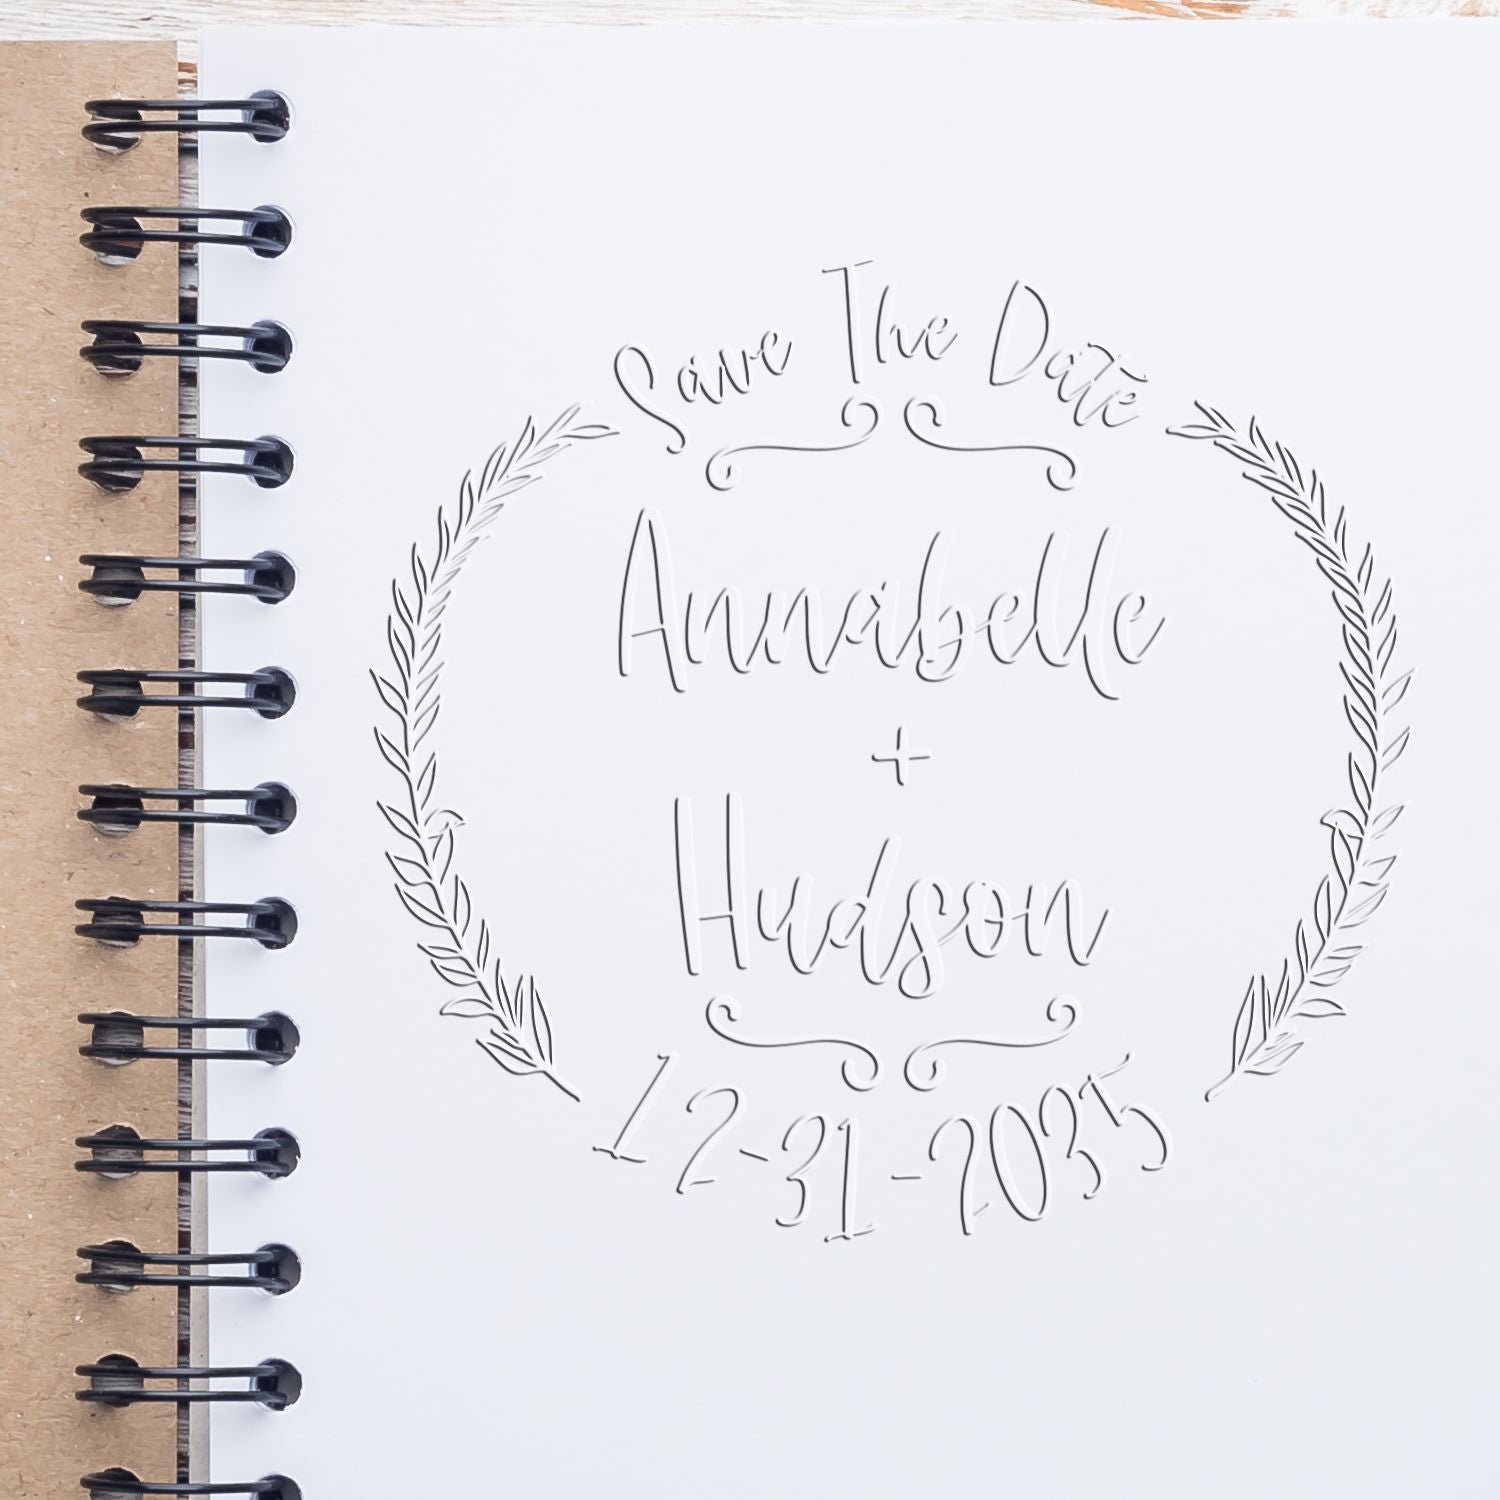 Save The Date
Annabelle
+
Hudson
12-31-2035